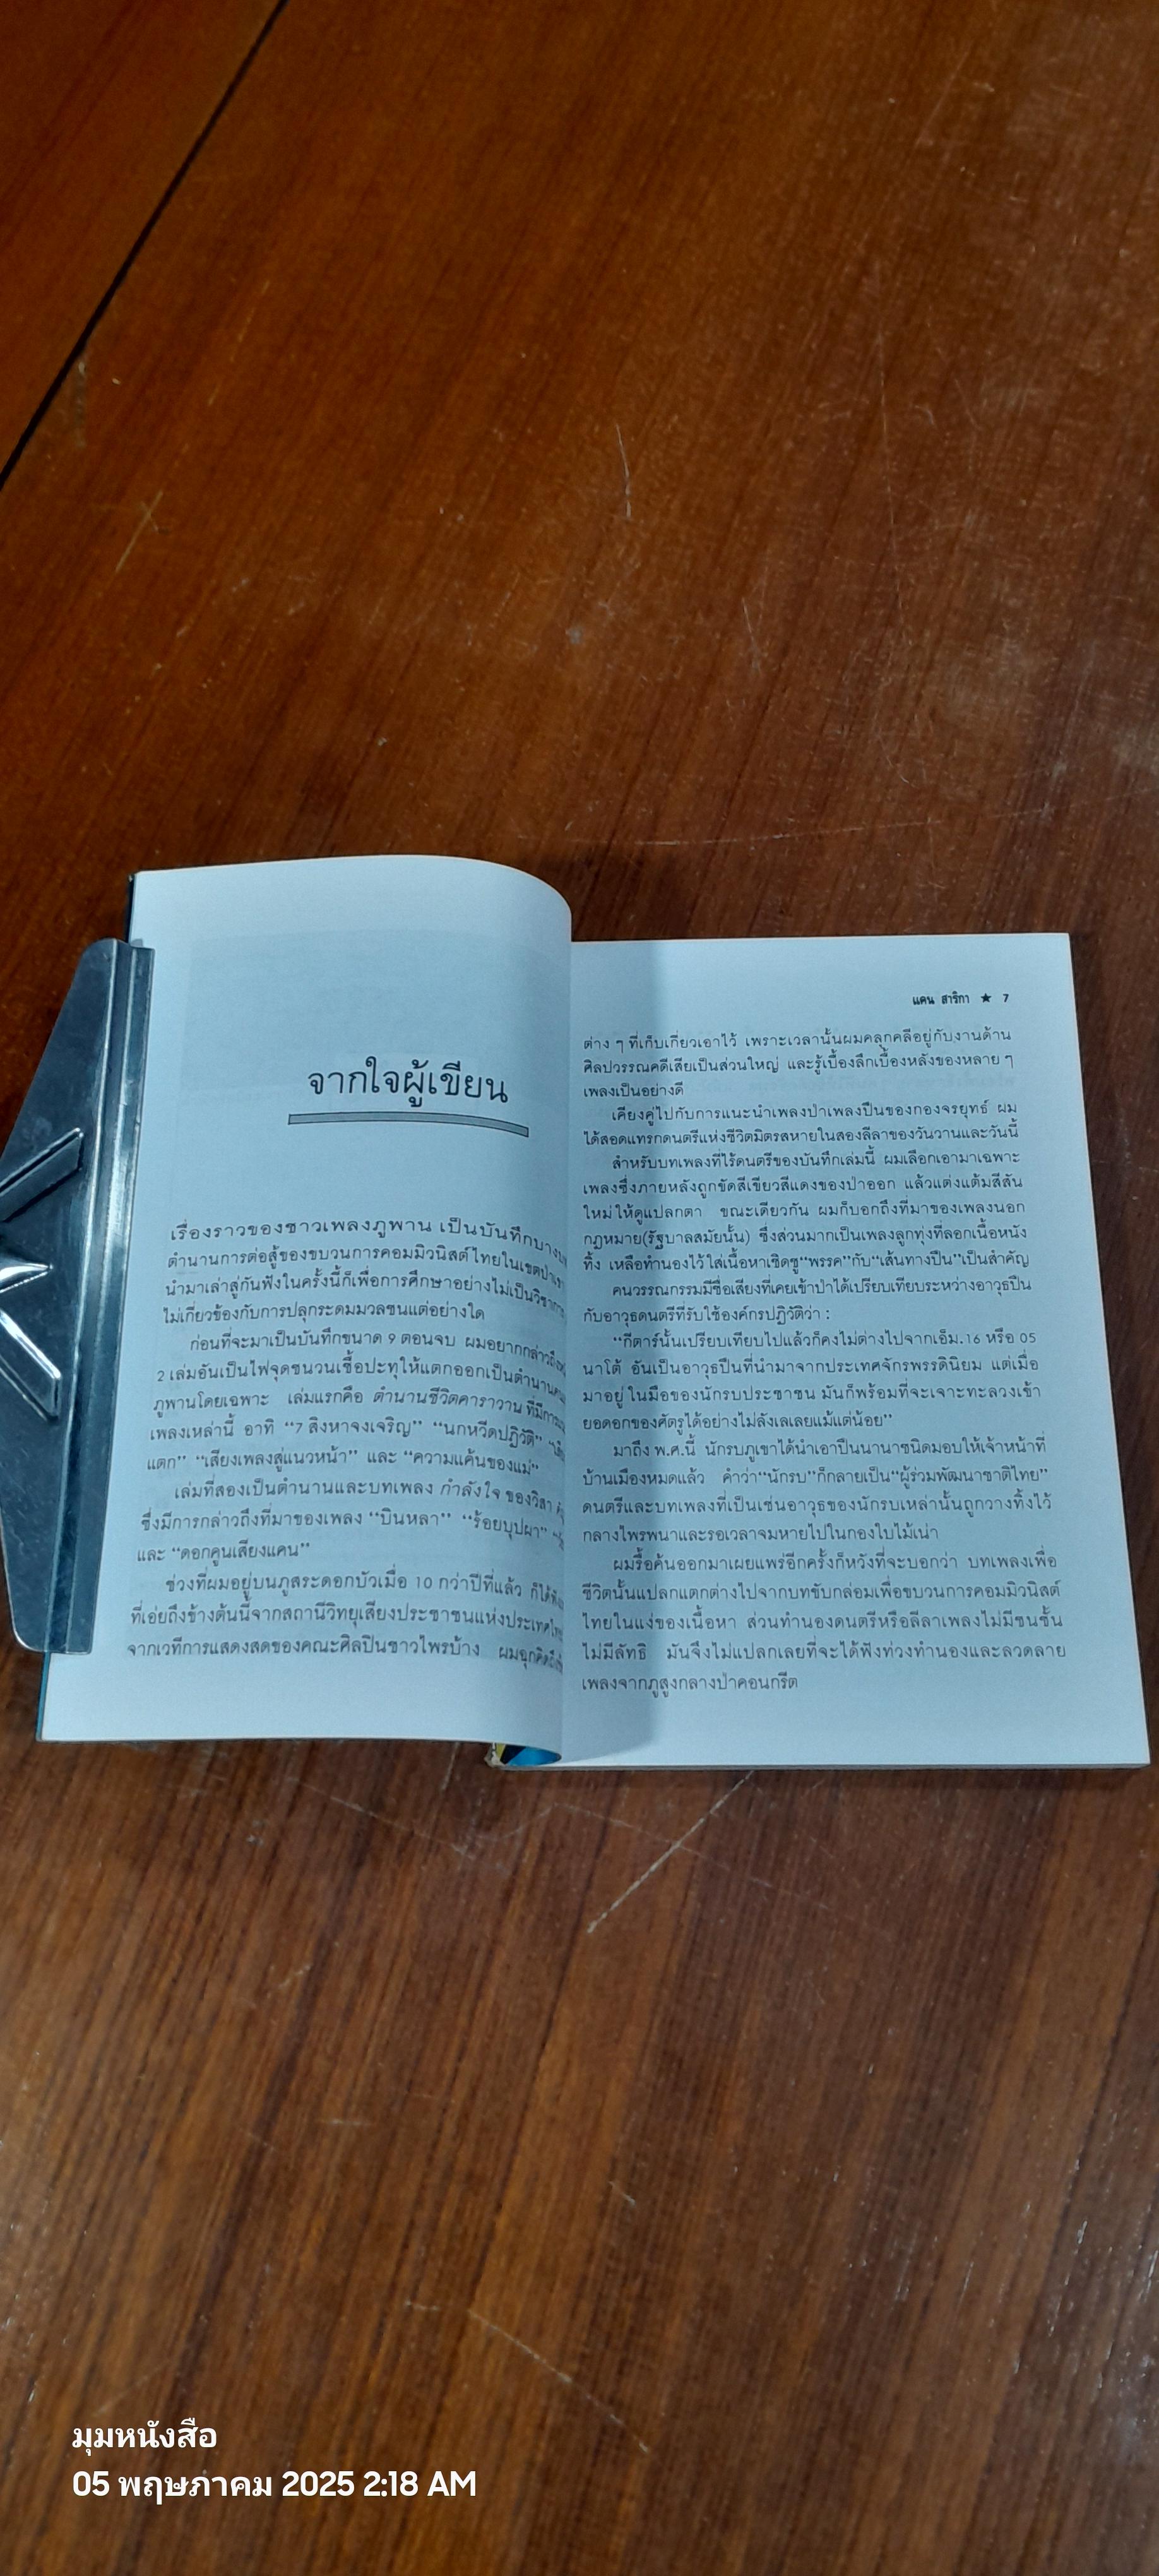 จากใจผู้เขียน
เรื่องราวของชาวเพลงภูพาน เป็นบันทึกบาง
ตำนานการต่อสู้ของขบวนการคอมมิวนิสต์ไทยในเขตป่าเขา
นำมาเล่าสู่กันฟังในครั้งนี้ก็เพื่อการศึกษาอย่างไม่เป็นวิชาการ
ไม่เกี่ยวข้องกับการปลุกระดมมวลชนแต่อย่างใด
ก่อนที่จะมาเป็นบันทึกขนาด 9 ตอนจบ ผมอยากกล่าวถึง
2 เล่มอันเป็นไฟจุดชนวนเชื้อปะทุให้แตกออกเป็นตำนาน
ภูพานโดยเฉพาะ เล่มแรกคือ ตำนานชีวิตคาราวาน ที่มีการ
เพลงเหล่านี้ อาทิ “7 สิงหาจงเจริญ” “นกหวีดปฏิวัติ”
แตก” “เสียงเพลงสู่แนวหน้า” และ “ความแค้นของแม่”
เล่มที่สองเป็นตำนานและบทเพลง กำลังใจ ของวิสา
ซึ่งมีการกล่าวถึงที่มาของเพลง “บินหลา” “ร้อยบุปผา”
และ “ดอกคูนเสียงแคน”
ช่วงที่ผมอยู่บนภูสระดอกบัวเมื่อ 10 กว่าปีที่แล้ว ก็ได้ฟัง
ที่เอ่ยถึงข้างต้นนี้จากสถานีวิทยุเสียงประชาชนแห่งประเทศไทย
จากเวทีการแสดงสดของคณะศิลปินชาวไพรบ้าง ผมฉุกคิดถึง
แคน สาริกา ★ 7
ต่าง ๆ ที่เก็บเกี่ยวเอาไว้ เพราะเวลานั้นผมคลุกคลีอยู่กับงานด้าน
ศิลปวรรณคดีเสียเป็นส่วนใหญ่ และรู้เบื้องลึกเบื้องหลังของหลาย ๆ
เพลงเป็นอย่างดี
เคียงคู่ไปกับการแนะนำเพลงป่าเพลงปืนของกองจรยุทธ์ ผม
ได้สอดแทรกดนตรีแห่งชีวิตมิตรสหายในสองลีลาของวันวานและวันนี้
สำหรับบทเพลงที่ไร้ดนตรีของบันทึกเล่มนี้ ผมเลือกเอามาเฉพาะ
เพลงซึ่งภายหลังถูกขัดสีเขียวสีแดงของป่าออก แล้วแต่งแต้มสีสัน
ใหม่ให้ดูแปลกตา ขณะเดียวกัน ผมก็บอกถึงที่มาของเพลงนอก
กฎหมาย(รัฐบาลสมัยนั้น) ซึ่งส่วนมากเป็นเพลงลูกทุ่งที่ลอกเนื้อหนัง
ทิ้ง เหลือทำนองไว้ใส่เนื้อหาเชิดชู“พรรค”กับ“เส้นทางปืน”เป็นสำคัญ
คนวรรณกรรมมีชื่อเสียงที่เคยเข้าป่าได้เปรียบเทียบระหว่างอาวุธปืน
กับอาวุธดนตรีที่รับใช้องค์กรปฏิวัติว่า :
“กีตาร์นั้นเปรียบเทียบไปแล้วก็คงไม่ต่างไปจากเอ็ม.16 หรือ 05
นาโต้ อันเป็นอาวุธปืนที่นำมาจากประเทศจักรพรรดินิยม แต่เมื่อ
มาอยู่ในมือของนักรบประชาชน มันก็พร้อมที่จะเจาะทะลวงเข้า
ยอดอกของศัตรูได้อย่างไม่ลังเลเลยแม้แต่น้อย”
มาถึง พ.ศ.นี้ นักรบภูเขาได้นำเอาปืนนานาชนิดมอบให้เจ้าหน้าที่
บ้านเมืองหมดแล้ว คำว่า“นักรบ”ก็กลายเป็น“ผู้ร่วมพัฒนาชาติไทย”
ดนตรีและบทเพลงที่เป็นเช่นอาวุธของนักรบเหล่านั้นถูกวางทิ้งไว้
กลางไพรพนาและรอเวลาจมหายไปในกองใบไม้เน่า
ผมรื้อค้นออกมาเผยแพร่อีกครั้งก็หวังที่จะบอกว่า บทเพลงเพื่อ
ชีวิตนั้นแปลกแตกต่างไปจากบทขับกล่อมเพื่อขบวนการคอมมิวนิสต์
ไทยในแง่ของเนื้อหา ส่วนทำนองดนตรีหรือลีลาเพลงไม่มีชนชั้น
ไม่มีลัทธิ มันจึงไม่แปลกเลยที่จะได้ฟังท่วงทำนองและลวดลาย
เพลงจากภูสูงกลางป่าคอนกรีต
มุมหนังสือ
05 พฤษภาคม 2025 2:18 AM